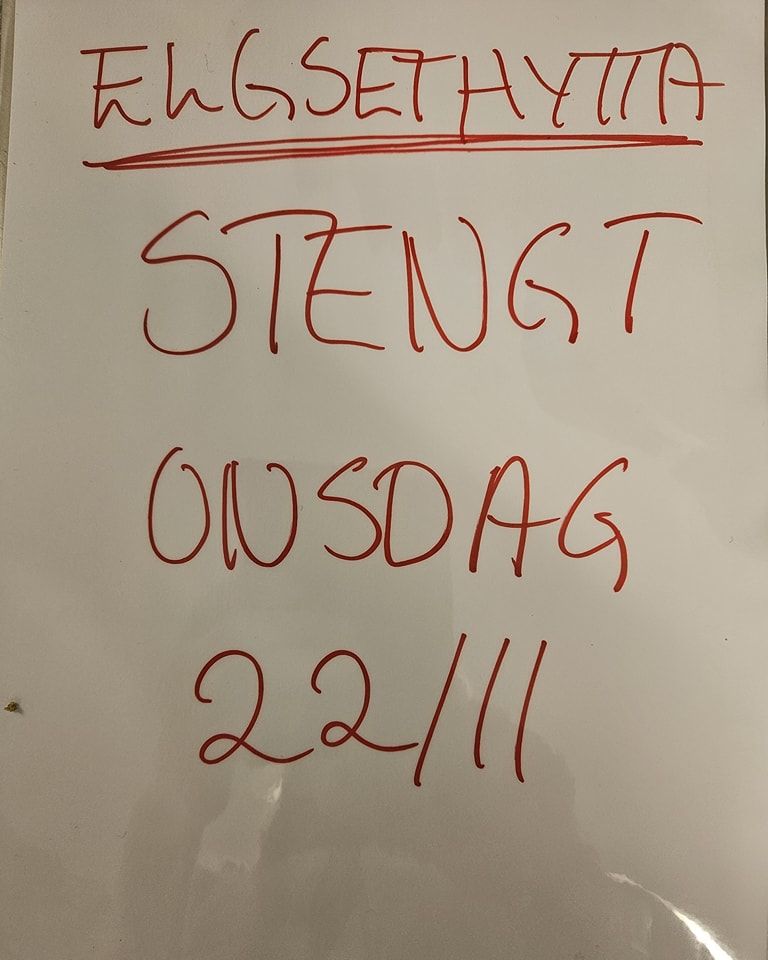 ELGSETHYTTA
STENGT
ONSDAG
22/11